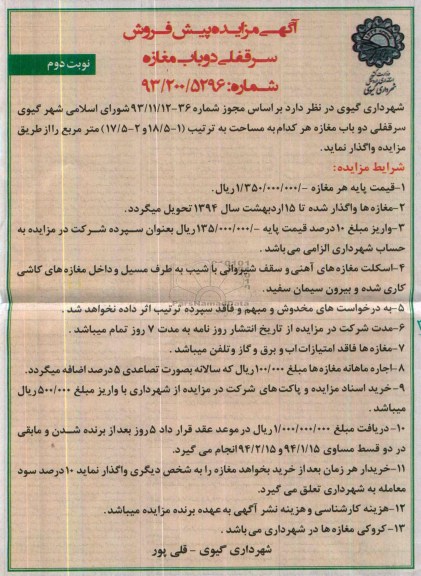 آگهی مزایده پیش فروش
سرقفلی دو باب مغازه
شماره: ۹۳/۲۰۰/۵۲۹۶
نوبت دوم
شهرداری گیوی
شهرداری گیوی در نظر دارد بر اساس مجوز شماره ۳۶-۹۳/۱۱/۱۲ شورای اسلامی شهر گیوی
سرقفلی دو باب مغازه هر کدام به مساحت به ترتیب (۱-۱۸/۵ و ۲-۱۷/۵) متر مربع را از طریق
مزایده واگذار نماید.
شرایط مزایده:
۱-قیمت پایه هر مغازه -/۱/۳۵۰/۰۰۰/۰۰۰ ریال.
۲-مغازه‌ها واگذار شده تا ۱۵ اردیبهشت سال ۱۳۹۴ تحویل میگردد.
۳-واریز مبلغ ۱۰ درصد قیمت پایه -/۱۳۵/۰۰۰/۰۰۰ ریال بعنوان سپرده شرکت در مزایده به
حساب شهرداری الزامی می باشد .
۴-اسکلت مغازه های آهنی و سقف شیروانی با شیب به طرف مسیل و داخل مغازه های کاشی
کاری شده و بیرون سیمان سفید.
۵-به درخواست های مخدوش و مبهم و فاقد سپرده ترتیب اثر داده نخواهد شد .
۶-مدت شرکت در مزایده از تاریخ انتشار روز نامه به مدت ۷ روز تمام میباشد .
۷-مغازه ها فاقد امتیازات اب و برق و گاز و تلفن میباشد .
۸-اجاره ماهانه مغازه ها مبلغ ۱۰۰/۰۰۰ ریال که سالانه بصورت تصاعدی ۵ درصد اضافه میگردد.
۹-خرید اسناد مزایده و پاکت های شرکت در مزایده از شهرداری با واریز مبلغ ۵۰۰/۰۰۰ ریال
میباشد .
۱۰-دریافت مبلغ ۱/۰۰۰/۰۰۰/۰۰۰ ریال در موعد عقد قرار داد ۵ روز بعد از برنده شدن و مابقی
در دو قسط مساوی ۹۴/۱/۱۵ و ۹۴/۲/۱۵ انجام می گیرد.
۱۱-خریدار هر زمان بعد از خرید بخواهد مغازه را به شخص دیگری واگذار نماید ۱۰ درصد سود
معامله به شهرداری تعلق می گیرد.
۱۲-هزینه کارشناسی و هزینه نشر آگهی به عهده برنده مزایده میباشد.
۱۳-کروکی مغازه ها در شهرداری می باشد .
شهرداری گیوی - قلی پور